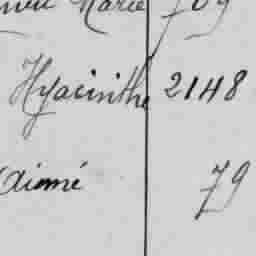 Marie 709
Hyacinthe 2148
Aimé 79